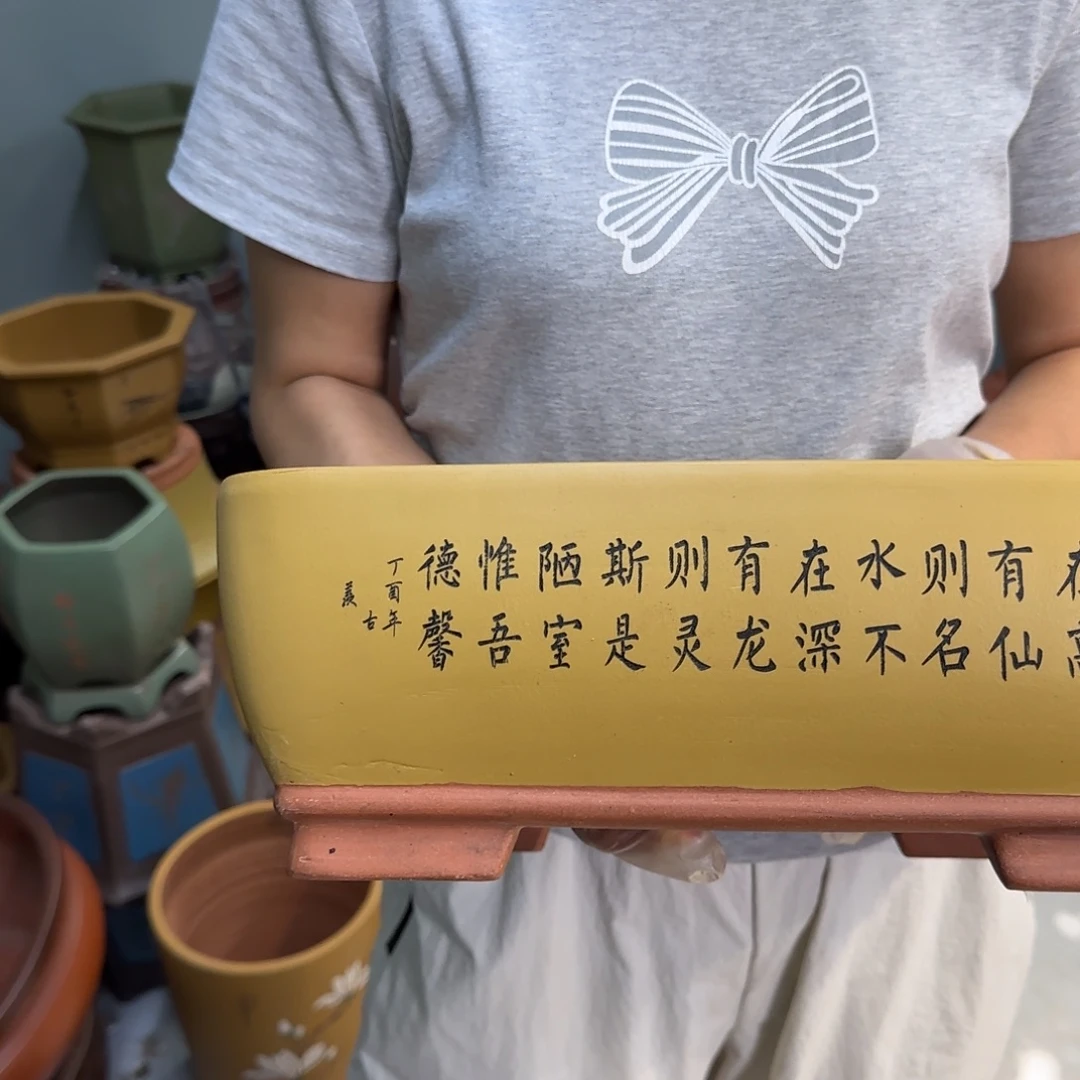 在高
有仙
则名
水不
在深
有龙
则灵
斯是
陋室
惟吾
德馨
丁酉年
古